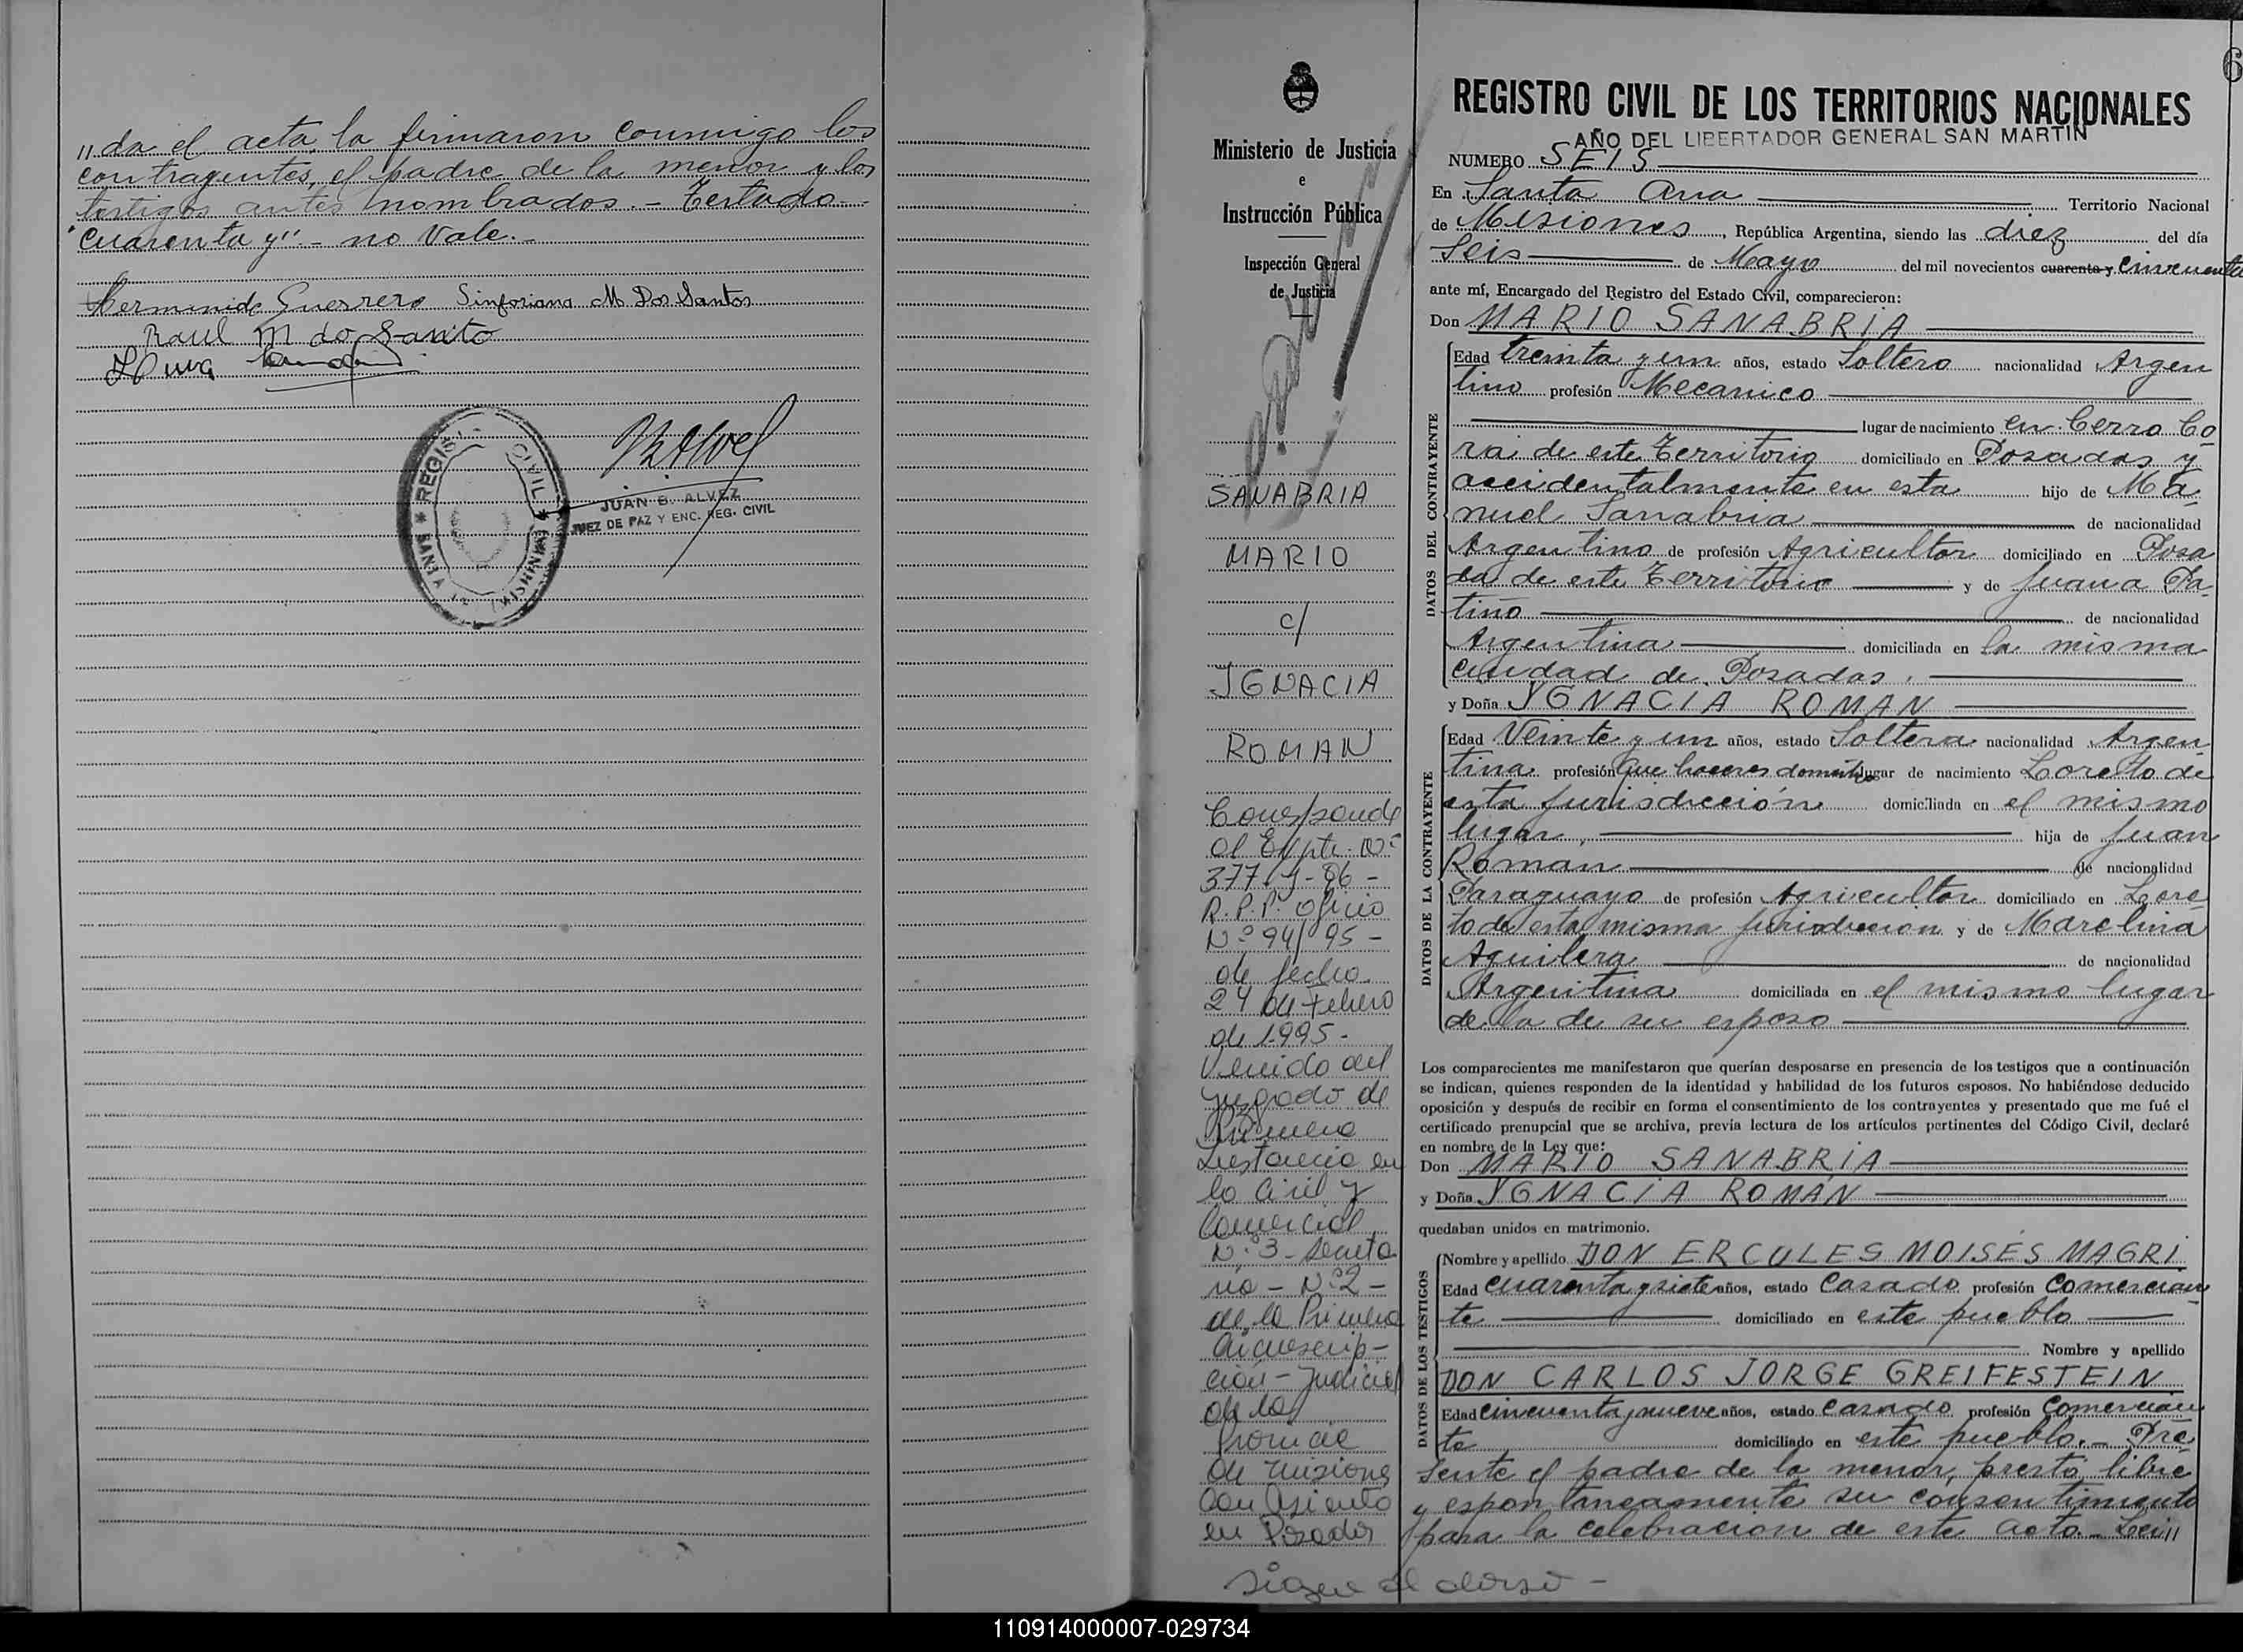 "da el acta, la firmaron conmigo los
contrayentes, el padre de la menor y los
testigos antes nombrados.- Testado-
"cuarenta y"- no vale.-
Guerrero Sinforiana M Dos Santos
Raul M do Santo
REGIST CIVIL
SANTA ANA (MISIONES)
JUAN B. ALVEZ
JUEZ DE PAZ Y ENC. REG. CIVIL
Ministerio de Justicia
e
Instrucción Pública
Inspección General
de Justicia
SANABRIA
MARIO
c/
YGNACIA
ROMAN
Corresponde
al Expte. Nº
377-
R.P.P. Oficio
Nº 94/95-
de fecha
24 de Febrero
de 1995-
Venido del
Juzgado de
Primera
Instancia en
lo Civil y
Comercial
Nº 3- Secreta
ria - Nº 2-
de la Primera
Circunscrip-
ción - Judicial
de la
Provincia
de Misiones
con Asiento
en Posadas
sigue al dorso-
6
REGISTRO CIVIL DE LOS TERRITORIOS NACIONALES
AÑO DEL LIBERTADOR GENERAL SAN MARTIN
NUMERO SEIS
En Santa Ana Territorio Nacional
de Misiones, República Argentina, siendo las diez del día
Seis de Mayo del mil novecientos cuarenta y cincuenta
ante mí, Encargado del Registro del Estado Civil, comparecieron:
Don MARIO SANABRIA
DATOS DEL CONTRAYENTE
Edad treinta y un años, estado Soltero nacionalidad Argen
tino profesión Mecanico
lugar de nacimiento en Cerro Co
rá de este Territorio domiciliado en Posadas y
accidentalmente en esta hijo de Ma
nuel Sanabria de nacionalidad
Argentino de profesión Agricultor domiciliado en Posa
da de este Territorio y de Juana Pa-
tiño de nacionalidad
Argentina domiciliada en la misma
ciudad de Posadas.
y Doña YGNACIA ROMAN
DATOS DE LA CONTRAYENTE
Edad Veinte y un años, estado Soltera nacionalidad Argen
tina profesión Que haceres domésticos lugar de nacimiento Loreto de
esta jurisdicción domiciliada en el mismo
lugar, hija de Juan
Roman de nacionalidad
Paraguayo de profesión Agricultor domiciliado en Lore-
to de esta misma jurisdiccion y de Marelina
Aguilera de nacionalidad
Argentina domiciliada en el mismo lugar
de la de su esposo
Los comparecientes me manifestaron que querían desposarse en presencia de los testigos que a continuación
se indican, quienes responden de la identidad y habilidad de los futuros esposos. No habiéndose deducido
oposición y después de recibir en forma el consentimiento de los contrayentes y presentado que me fué el
certificado prenupcial que se archiva, previa lectura de los artículos pertinentes del Código Civil, declaré
en nombre de la Ley que:
Don MARIO SANABRIA
y Doña YGNACIA ROMÁN
quedaban unidos en matrimonio.
DATOS DE LOS TESTIGOS
Nombre y apellido DON ERCULES MOISÉS MAGRI.
Edad cuarenta y siete años, estado Casado profesión Comercian
te domiciliado en este pueblo
Nombre y apellido
DON CARLOS JORGE GREIFESTEIN
Edad cincuenta y nueve años, estado casado profesión Comercian
te domiciliado en este pueblo.- Pre-
sente el padre de la menor, prestó libre
y espontaneamente su consentimiento
para la celebración de este acto.- Lei"
110914000007-029734